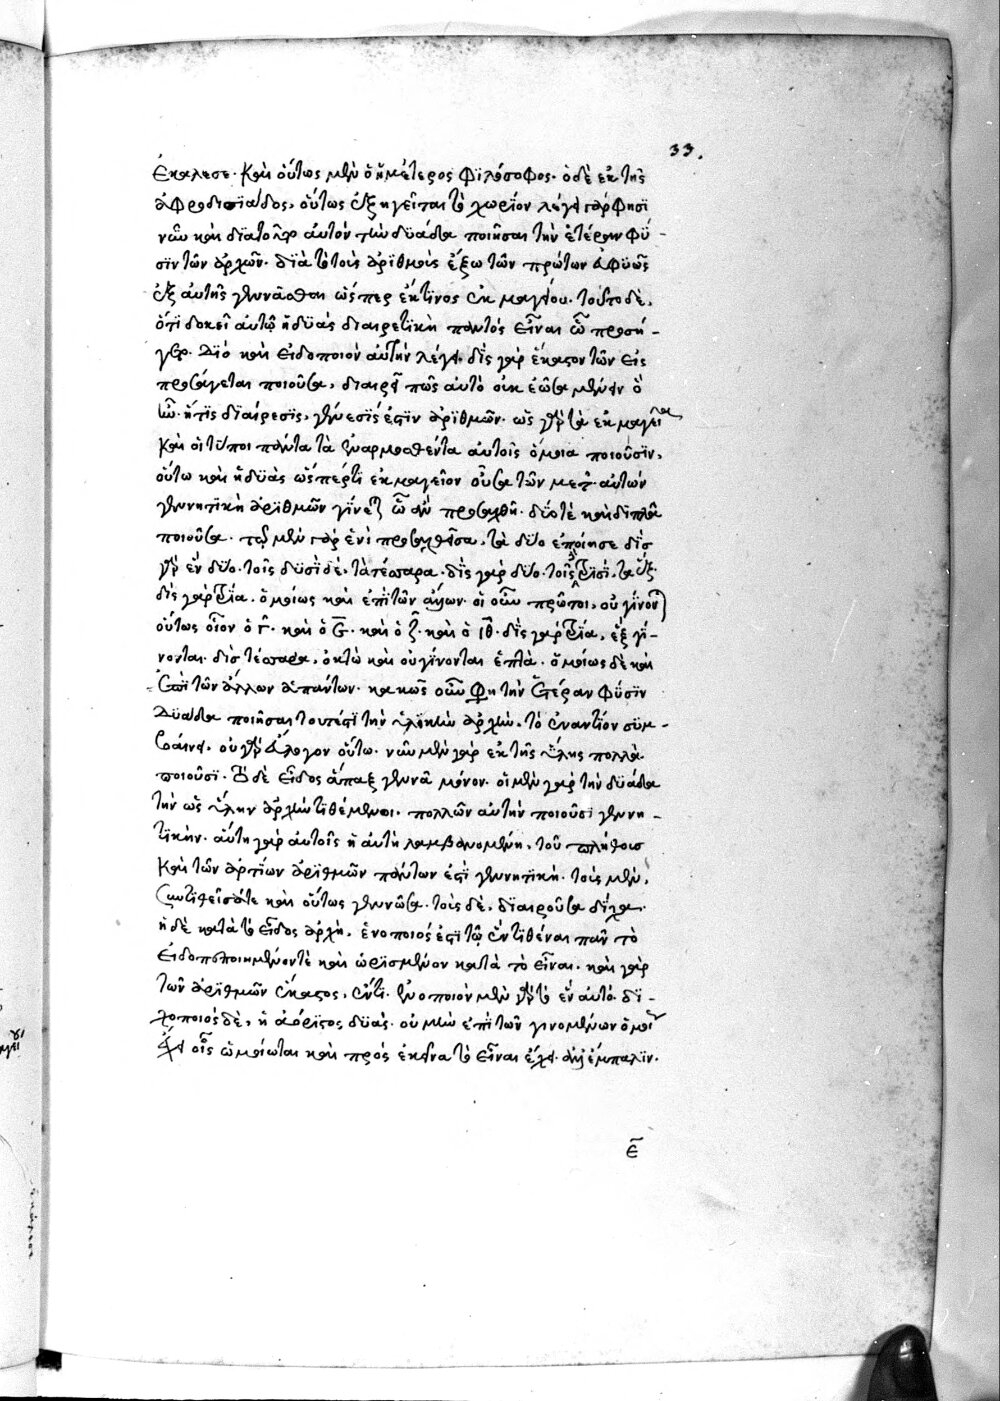 33.
ἐκάλεσε. καὶ οὕτως μὲν ὁ ἡμέτερος φιλόσοφος. ὁ δὲ ἐκ τῆς
ἀφροδισιάδος, οὕτως ἐξηγεῖται τὸ χωρίον λέγει γάρ φησι
νῦν καὶ διὰ τὸ αὐτὸν τὴν δυάδα ποιῆσαι τὴν ἑτέραν φύ-
σιν τῶν ἀρχῶν. διὰ τὸ τοὺς ἀριθμοὺς ἔξω τῶν πρώτων εὐφυῶς
ἐξ αὐτῆς γεννᾶσθαι ὥσπερ ἔκ τινος ἐκμαγείου. τοῦτο δὲ,
ὅτι δοκεῖ αὐτῷ ἡ δυὰς διαιρετικὴ παντὸς εἶναι ᾧ προσή-
γετο. διὸ καὶ εἰδοποιὸν αὐτὴν λέγει. δὶς γὰρ ἕκαστον τῶν εἰς
προσάγεται ποιοῦσα, διαιρεῖ πως αὐτὸ οὐκ ἐῶσα μένειν ὃ
ἦν. ἥτις διαίρεσις, γένεσίς ἐστιν ἀριθμῶν. ὡς γὰρ τὰ ἐκμαγεῖα
καὶ οἱ τύποι πάντα τὰ ἐναρμοσθέντα αὐτοῖς ὅμοια ποιοῦσιν,
οὕτω καὶ ἡ δυὰς ὥσπερ τι ἐκμαγεῖον οὖσα τῶν μετ' αὐτὴν
γεννητικὴ ἀριθμῶν γίνεται ᾧ ἂν προσαχθῇ. δύο τε καὶ διπλᾶ
ποιοῦσα. τῷ μὲν γὰρ ἑνὶ προσαχθεῖσα, τὰ δύο ἐποίησε δὶς
γὰρ ἓν δύο. τοῖς δυσὶ δὲ, τὰ τέσσαρα. δὶς γὰρ δύο. τοῖς τρισὶ, τὰ ἕξ.
δὶς γὰρ τρία. ὁμοίως καὶ ἐπὶ τῶν ἄλλων. οἱ οὖν πρῶτοι, οὐ γίνονται
οὕτως οἷον ὁ γ. καὶ ὁ ε. καὶ ὁ ζ. καὶ ὁ ιθ. δὶς γὰρ τρία, ἓξ γί-
νονται. δὶς τέσσαρα, ὀκτὼ καὶ οὐ γίνονται ἑπτά. ὁμοίως δὲ καὶ
ἐπὶ τῶν ἄλλων ἁπάντων. κακῶς οὖν φη τὴν ἑτέραν φύσιν
δυάδα ποιῆσαι τουτέστι τὴν ὑλικὴν ἀρχὴν. τὸ ἐναντίον συμ-
βαίνει. οὐ γὰρ εὔλογον οὕτω. νῦν μὲν γὰρ ἐκ τῆς ὕλης πολλὰ
ποιοῦσι. τὸ δὲ εἶδος ἅπαξ γεννᾷ μόνον. οἱ μὲν γὰρ τὴν δυάδα
τὴν ὡς ὕλην ἀρχὴν τιθέμενοι. πολλῶν αὐτὴν ποιοῦσι γεννη-
τικήν. αὕτη γὰρ αὐτοῖς ἡ αὐτὴ λαμβανομένη, τοῦ πλήθους
καὶ τῶν ἀρτίων ἀριθμῶν πάντων ἐστὶ γεννητικὴ. τοὺς μὲν,
συντιθεῖσά τε καὶ οὕτως γεννῶσα. τοὺς δὲ, διαιροῦσα δίχα.
ἡ δὲ κατὰ τὸ εἶδος ἀρχὴ, ἑνοποιός ἐστι τῷ ἐντιθέναι πᾶν τὸ
εἰδοποποιημένον τε καὶ ὡρισμένον κατὰ τὸ εἶναι. καὶ γὰρ
τῶν ἀριθμῶν ἕκαστος, ἐστὶ. ἑνοποιὸν μὲν γὰρ τὸ ἓν αὐτὸ. δι-
χοποιὸς δὲ, ἡ ἀόριστος δυάς. οὐ μὴν ἐπὶ τῶν γινομένων ὁμοί
οἷς ὡμοίωται καὶ πρὸς ἐκεῖνα τὸ εἶναι ἔχει. ἀλλ' ἔμπαλιν.
ε